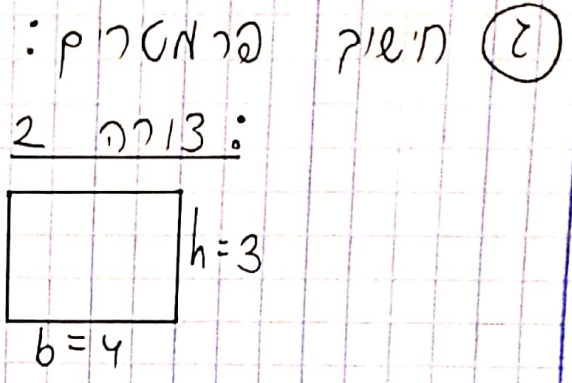 ג חישוב פרמטרים:
צורה 2:
h=3
b=4